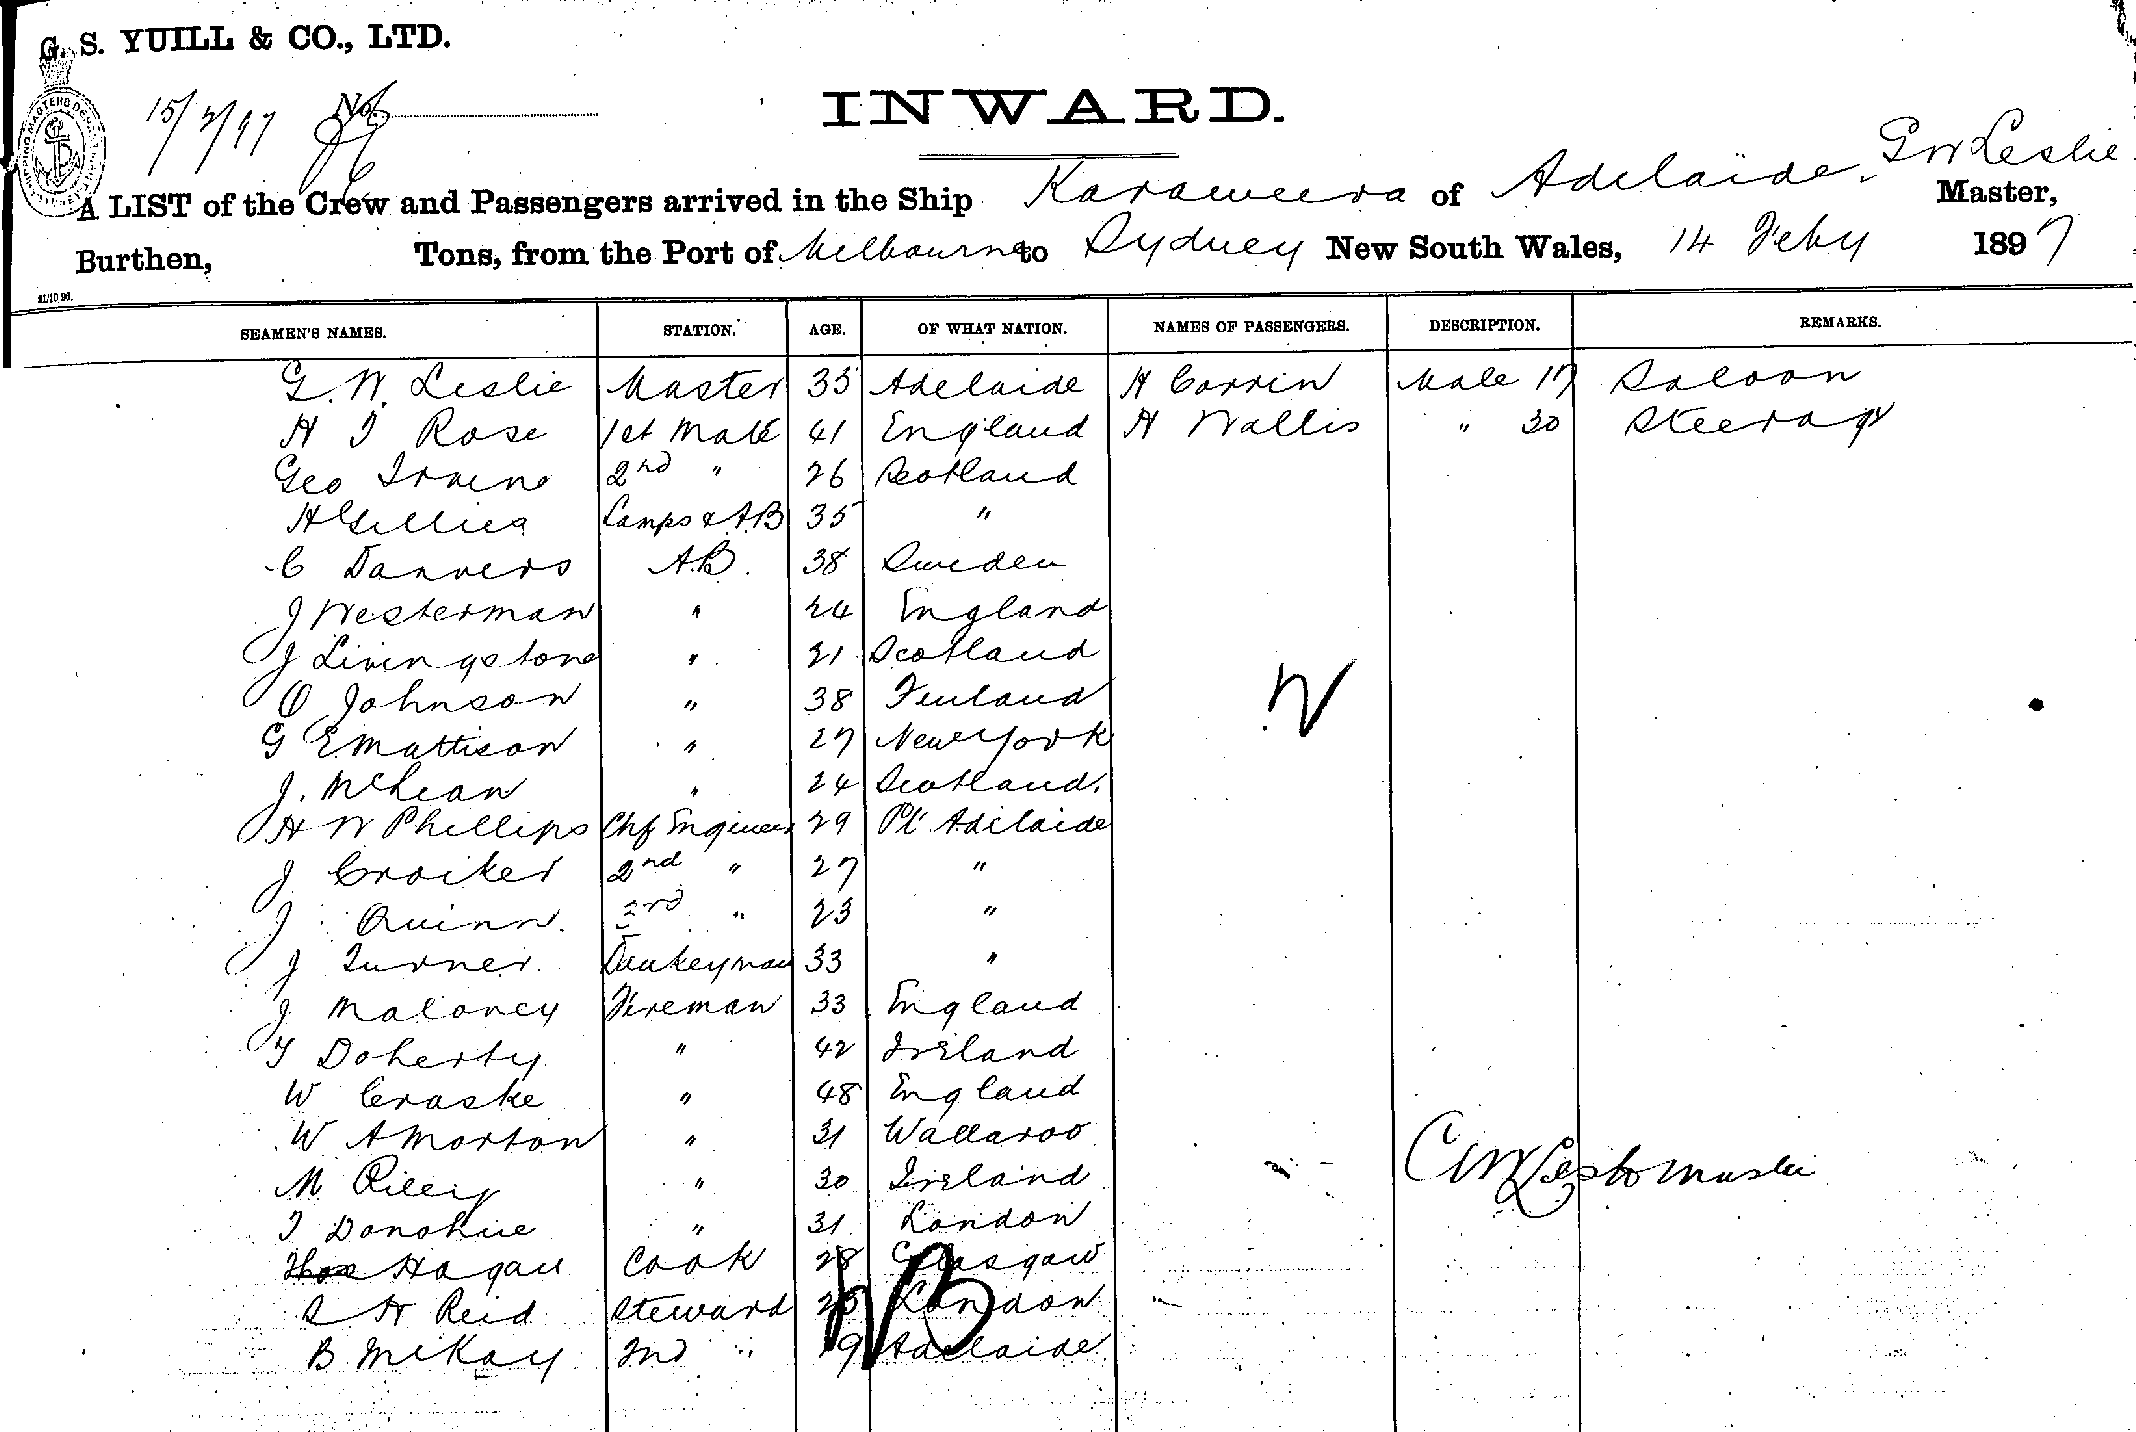 G. S. YUILL & CO., LTD.
15/2/97 No.
INWARD.
G W Leslie
A LIST of the Crew and Passengers arrived in the Ship Karaweera of Adelaide. Master,
Burthen, Tons, from the Port of Melbourne to Sydney New South Wales, 14 Feby 1897
21/10 96.
SEAMEN'S NAMES. STATION. AGE. OF WHAT NATION. NAMES OF PASSENGERS. DESCRIPTION. REMARKS.
G. W. Leslie Master 35 Adelaide H Corrin Male 17 Saloon
H J Rose 1st Mate 41 England H Wallis " 30 Steerage
Geo Irvine 2nd " 26 Scotland
H Gillies Lamps & AB 35 "
C Danvers AB. 38 Sweden
J Westerman " 24 England
J Livingstone " 21 Scotland
O Johnson " 38 Finland
G E Mattison " 27 New York
J. McLean " 24 Scotland.
H W Phillips Chf Engineer 29 Pt Adelaide
J Croiker 2nd " 27 "
J Quinn. 3rd " 23 "
J Turner. Donkeyman 33 "
J Maloney Fireman 33 England
T Doherty " 42 Ireland
W Craske " 48 England
W A Morton " 31 Wallaroo
M Riley " 30 Ireland
T Donohue " 31 London
Hogan Cook 28 Glasgow
S H Reid Steward London
B McKay 2nd " 19 Adelaide
GW Leslie Master